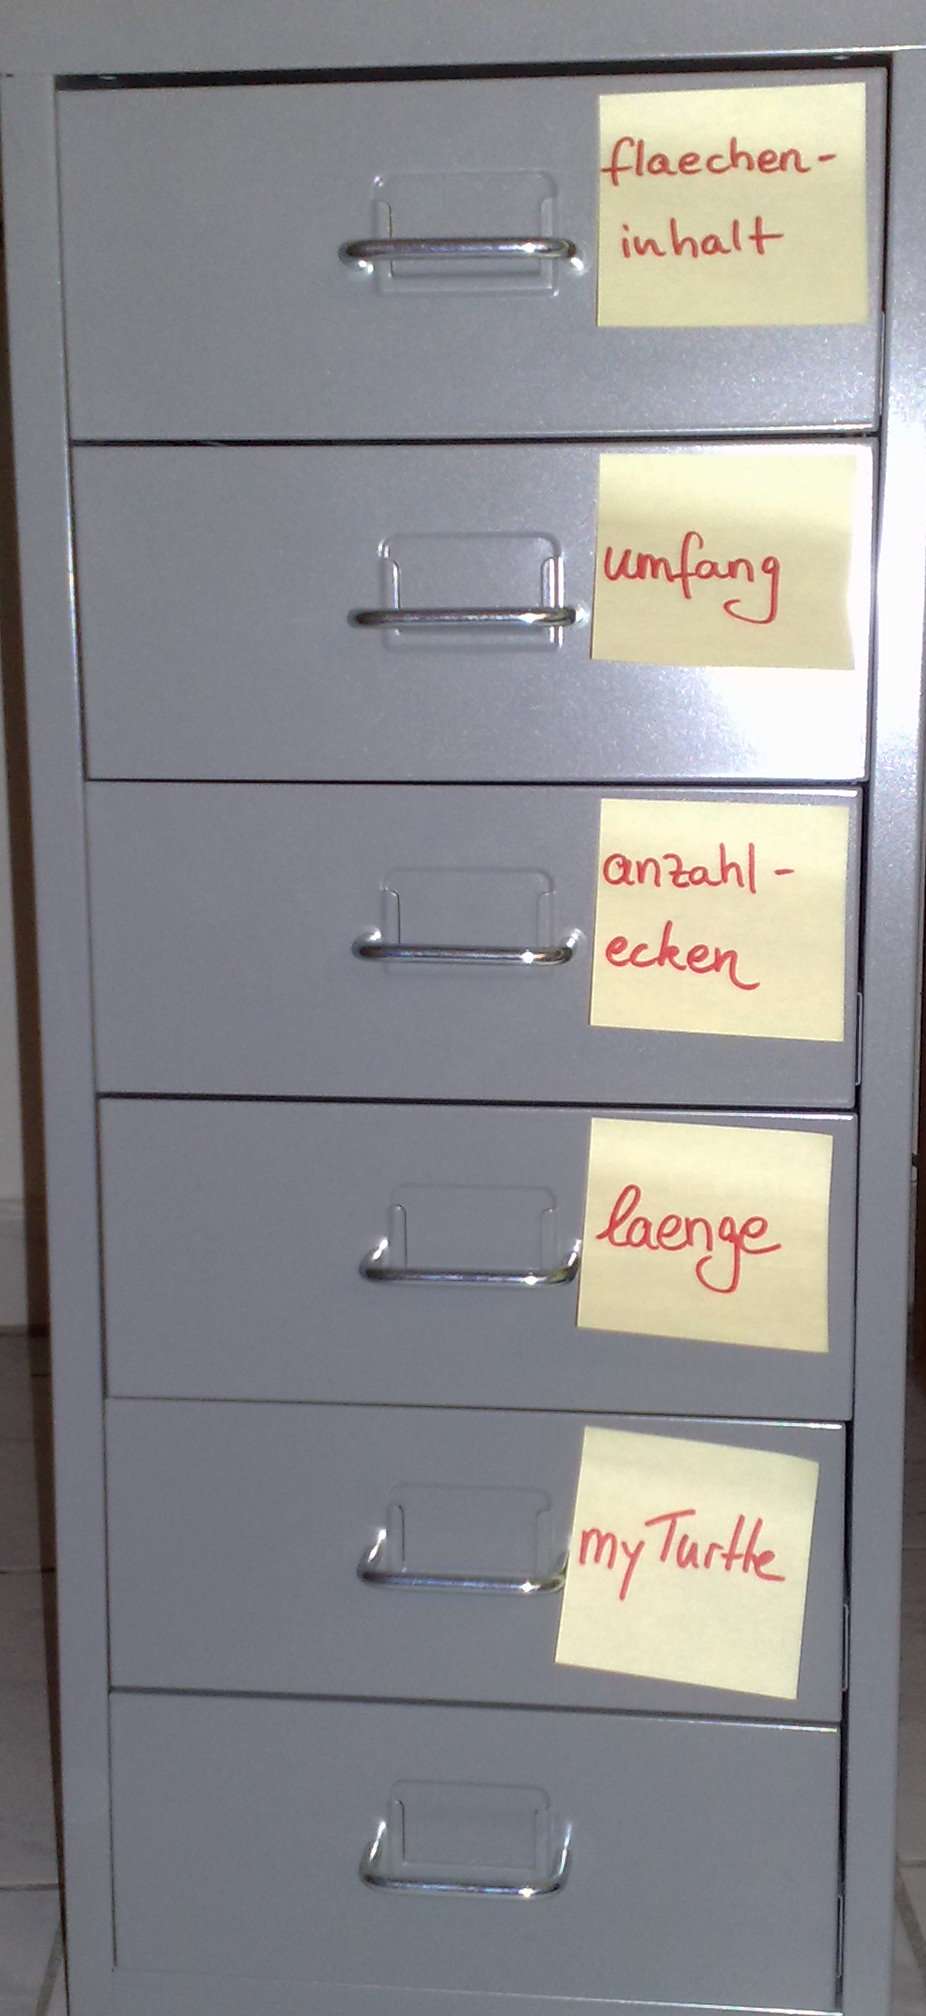 flaechen-
inhalt
umfang
anzahl-
ecken
laenge
myTurtle